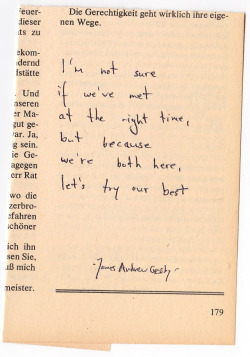 euer-
dieser
ts zu
ekom-
ndernd
lstätte
. Und
nseren
er Ma-
gut ge-
var. Ja,
g sein.
ie Ge-
agegen
err Rat
wo die
zerbro-
efahren
schöner
ich ihn
sen Sie,
uß mich
meister.
Die Gerechtigkeit geht wirklich ihre eige-
nen Wege.
I'm not sure
if we've met
at the right time,
but because
we're both here,
let's try our best
-James Andrew Crosby-
179